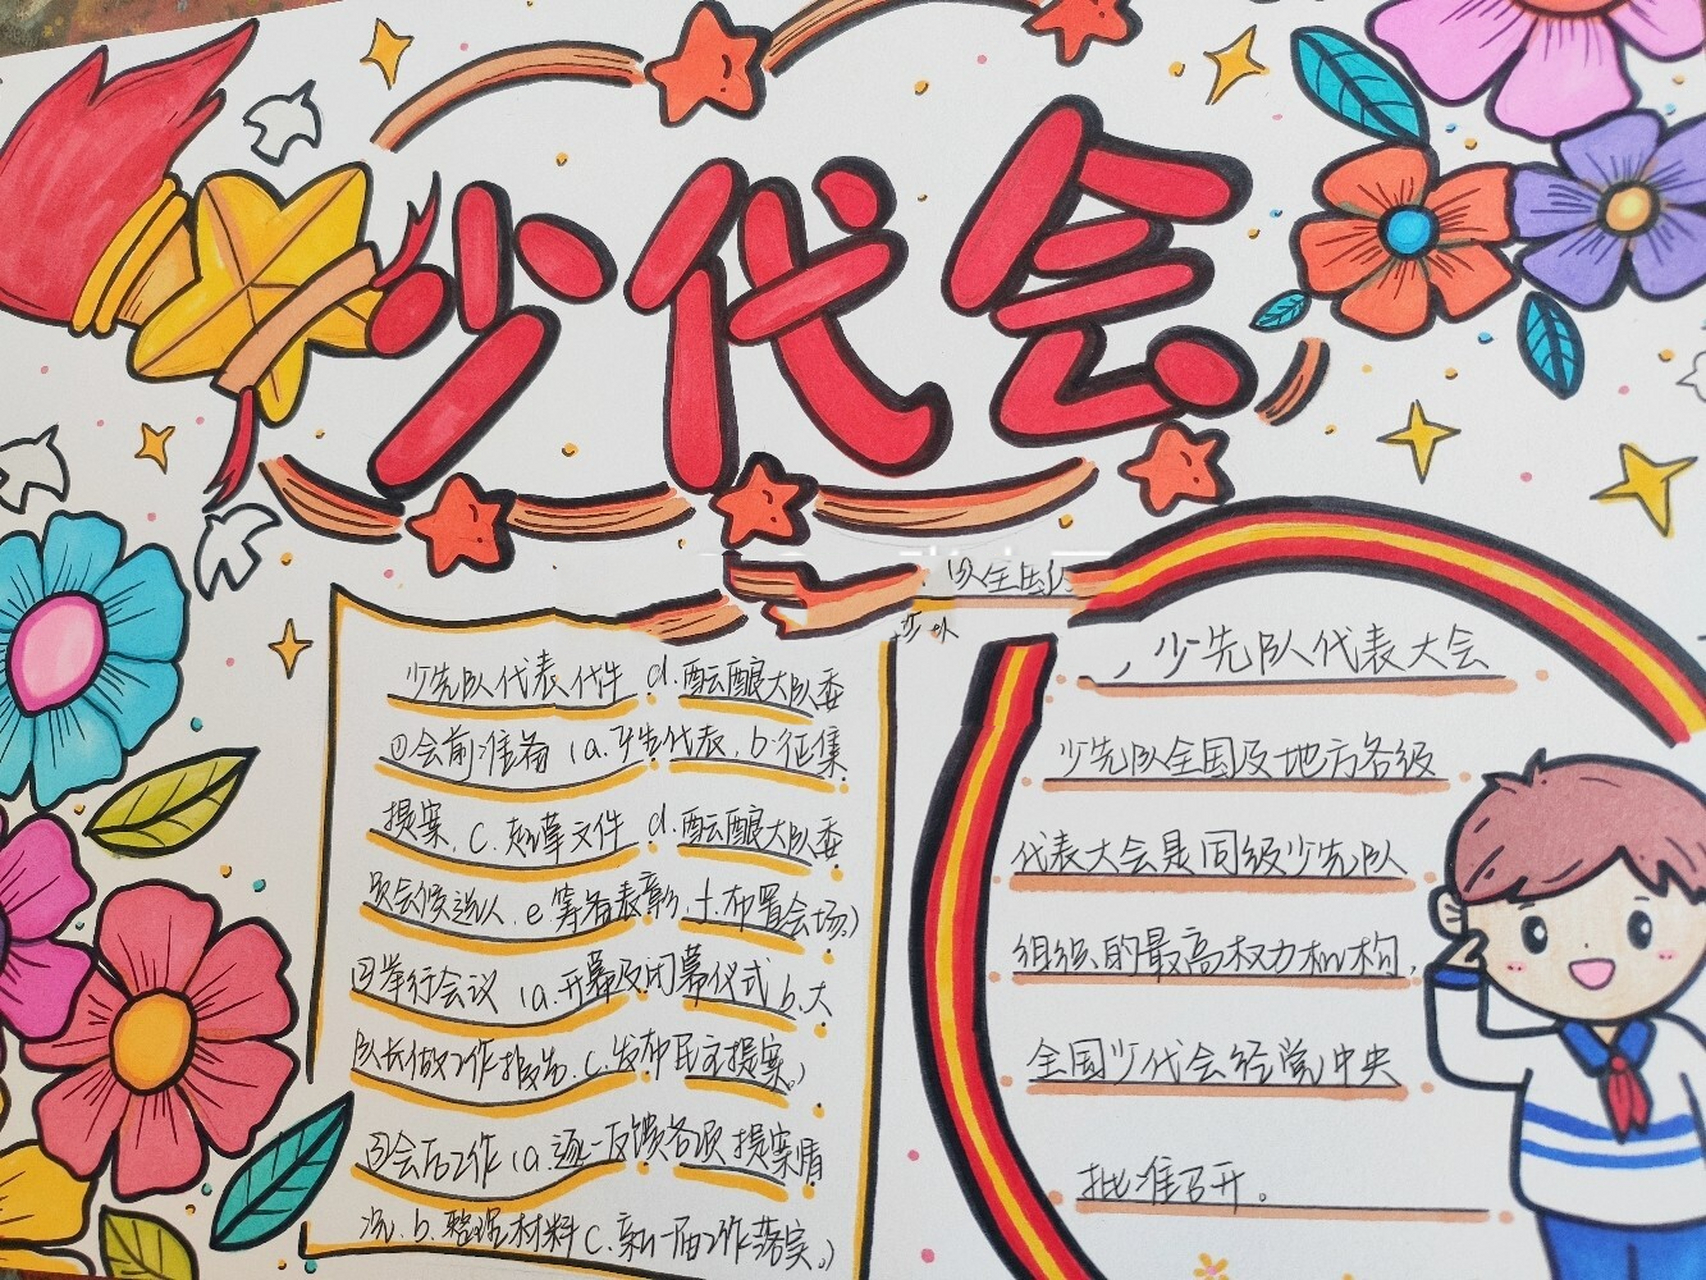 少代会
少先队代表代件 d.酝酿大队委
①会前准备(a.产生代表.b.征集
提案.c.起草文件 d.酝酿大队委
员会候选人.e.筹备表彰.f.布置会场。)
②举行会议(a.开幕及闭幕仪式b.大
队长做工作报告.c.发布民主提案。)
③会后工作(a.逐一反馈各项提案情
况.b.整理材料c.新一届工作落实。)
,少先队代表大会
少先队全国及地方各级
代表大会是同级少先队
组织的最高权力机构,
全国少代会经党中央
批准召开。